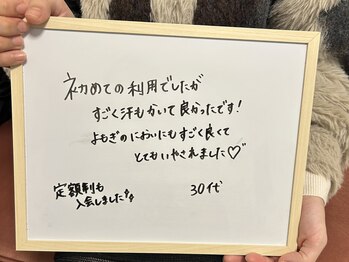 初めての利用でしたが
すごく汗もかいて良かったです!
よもぎのにおいにもすごく良くて
とてもいやされました♡
定額制も
入会しました
30代